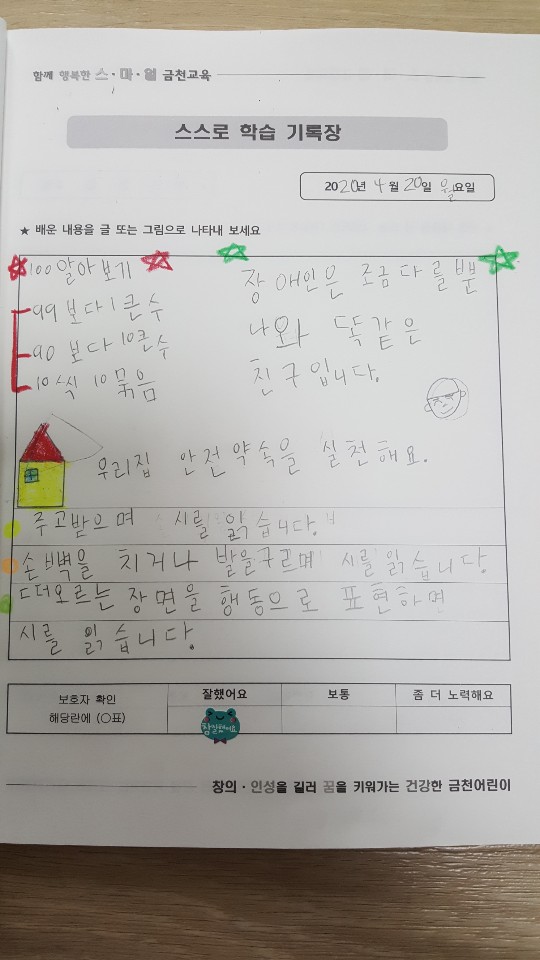 함께 행복한 스·마·일 금천교육
스스로 학습 기록장
2020년 4월 20일 월요일
★ 배운 내용을 글 또는 그림으로 나타내 보세요
100 알아보기
99 보다 1 큰 수
90 보다 10 큰 수
10씩 10 묶음
장애인은 조금 다를 뿐
나와 똑같은
친구입니다.
우리집 안전약속을 실천해요.
주고받으며 시를 읽습니다.
손뼉을 치거나 발을 구르며 시를 읽습니다.
떠오르는 장면을 행동으로 표현하며
시를 읽습니다.
보호자 확인
해당란에 (○표)
잘했어요 보통 좀 더 노력해요
참 잘했어요
창의·인성을 길러 꿈을 키워가는 건강한 금천어린이